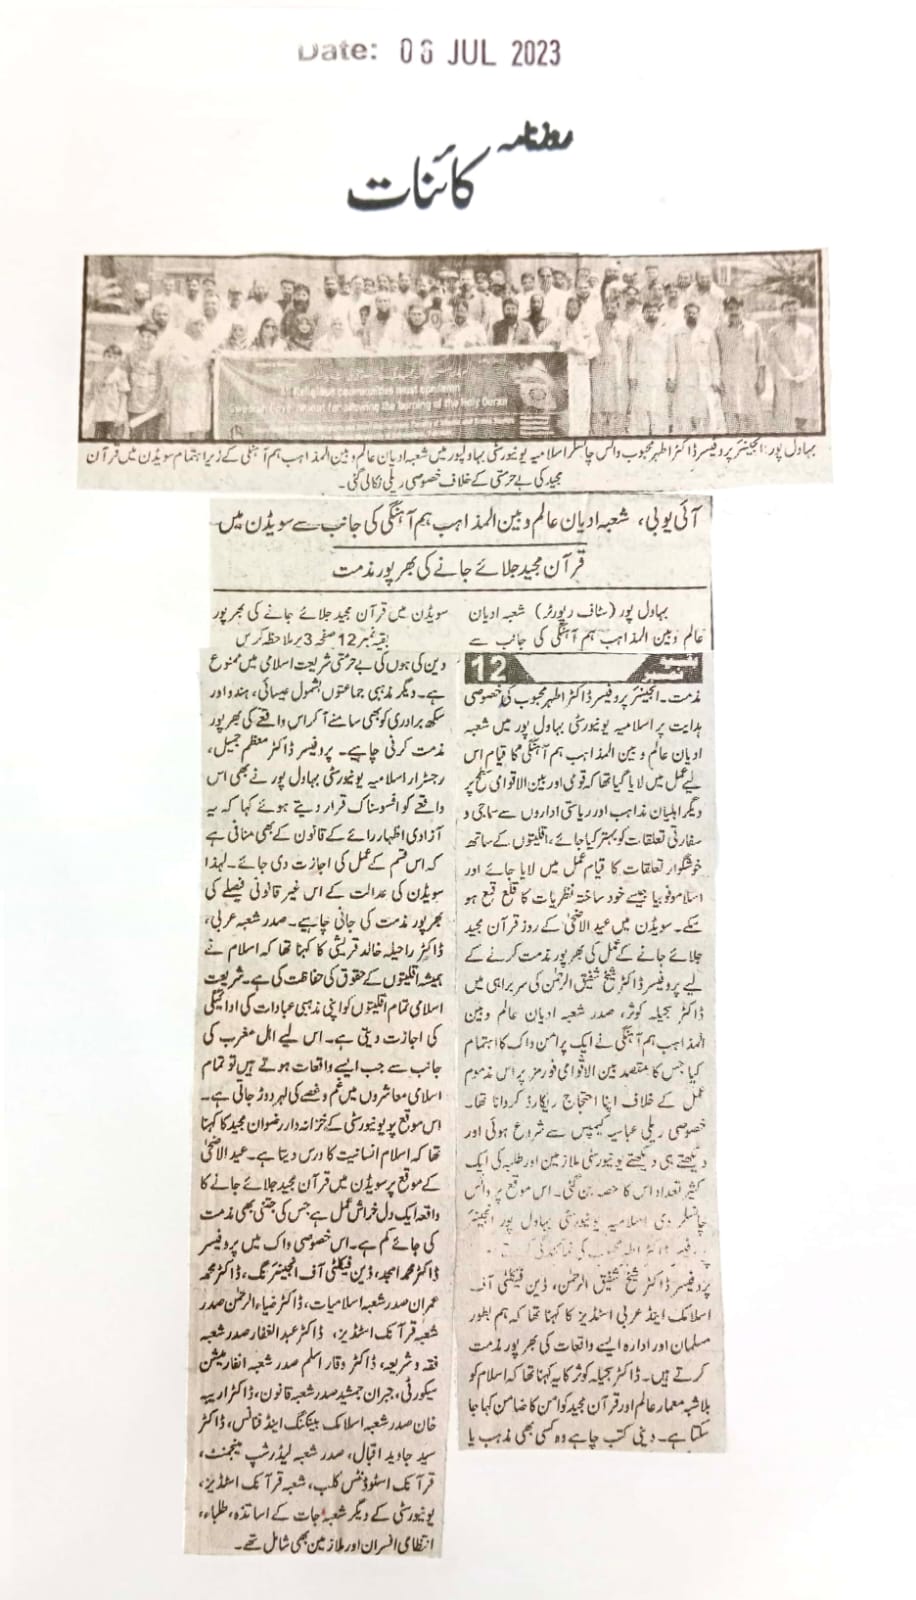 Date: 06 JUL 2023
روزنامہ
کائنات
Religious communities must condemn
Swedish Government for allowing the burning of the Holy Quran
بہاول پور: انجینئر پروفیسر ڈاکٹر اطہر محبوب وائس چانسلر اسلامیہ یونیورسٹی بہاولپور میں شعبہ ادیان عالم و بین المذاہب ہم آہنگی کے زیر اہتمام سویڈن میں قرآن
مجید کی بے حرمتی کے خلاف خصوصی ریلی نکالی گئی۔
آئی یو بی، شعبہ ادیان عالم و بین المذاہب ہم آہنگی کی جانب سے سویڈن میں
قرآن مجید جلائے جانے کی بھرپور مذمت
بہاول پور (سٹاف رپورٹر) شعبہ ادیان
عالم و بین المذاہب ہم آہنگی کی جانب سے
سویڈن میں قرآن مجید جلائے جانے کی بھرپور
بقیہ نمبر 12 صفحہ 3 پر ملاحظہ کریں
بقیہ نمبر 12
مذمت۔ انجینئر پروفیسر ڈاکٹر اطہر محبوب کی خصوصی
ہدایت پر اسلامیہ یونیورسٹی بہاول پور میں شعبہ
ادیان عالم و بین المذاہب ہم آہنگی کا قیام اس
لیے عمل میں لایا گیا تھا کہ قومی اور بین الاقوامی سطح پر
دیگر اہلیان مذاہب اور ریاستی اداروں سے سماجی و
سفارتی تعلقات کو بہتر کیا جائے، اقلیتوں کے ساتھ
خوشگوار تعلقات کا قیام عمل میں لایا جائے اور
اسلاموفوبیا جیسے خود ساختہ نظریات کا قلع قمع ہو
سکے۔ سویڈن میں عید الاضحیٰ کے روز قرآن مجید
جلائے جانے کے عمل کی بھرپور مذمت کرنے کے
لیے پروفیسر ڈاکٹر شیخ شفیق الرحمٰن کی سربراہی میں
ڈاکٹر سجیلہ کوثر، صدر شعبہ ادیان عالم و بین
المذاہب ہم آہنگی نے ایک پرامن واک کا اہتمام
کیا جس کا مقصد بین الاقوامی فورمز پر اس مذموم
عمل کے خلاف اپنا احتجاج ریکارڈ کروانا تھا۔
خصوصی ریلی عباسیہ کیمپس سے شروع ہوئی اور
دیکھتے ہی دیکھتے یونیورسٹی ملازمین اور طلبہ کی ایک
کثیر تعداد اس کا حصہ بن گئی۔ اس موقع پر وائس
چانسلر دی اسلامیہ یونیورسٹی بہاول پور انجینئر
پروفیسر ڈاکٹر اطہر محبوب کی نمائندگی کرتے
پروفیسر ڈاکٹر شیخ شفیق الرحمٰن، ڈین فیکلٹی آف
اسلامک اینڈ عربی اسٹڈیز کا کہنا تھا کہ ہم بطور
مسلمان اور ادارہ ایسے واقعات کی بھرپور مذمت
کرتے ہیں۔ ڈاکٹر سجیلہ کوثر کا یہ کہنا تھا کہ اسلام کو
بلاشبہ معمار عالم اور قرآن مجید کو امن کا ضامن کہا جا
سکتا ہے۔ دینی کتب چاہے وہ کسی بھی مذہب یا
دین کی ہوں کی بے حرمتی شریعت اسلامی میں ممنوع
ہے۔ دیگر مذہبی جماعتوں بشمول عیسائی، ہندو اور
سکھ برادری کو بھی سامنے آ کر اس واقعے کی بھرپور
مذمت کرنی چاہیے۔ پروفیسر ڈاکٹر معظم جمیل،
رجسٹرار اسلامیہ یونیورسٹی بہاول پور نے بھی اس
واقعے کو افسوسناک قرار دیتے ہوئے کہا کہ یہ
آزادی اظہار رائے کے قانون کے بھی منافی ہے
کہ اس قسم کے عمل کی اجازت دی جائے۔ لہذا
سویڈن کی عدالت کے اس غیر قانونی فیصلے کی
بھرپور مذمت کی جانی چاہیے۔ صدر شعبہ عربی،
ڈاکٹر راحیلہ خالد قریشی کا کہنا تھا کہ اسلام نے
ہمیشہ اقلیتوں کے حقوق کی حفاظت کی ہے۔ شریعت
اسلامی تمام اقلیتوں کو اپنی مذہبی عبادات کی ادائیگی
کی اجازت دیتی ہے۔ اس لیے اہل مغرب کی
جانب سے جب ایسے واقعات ہوتے ہیں تو تمام
اسلامی معاشروں میں غم و غصے کی لہر دوڑ جاتی ہے۔
اس موقع پر یونیورسٹی کے خزانہ دار رضوان مجید کا کہنا
تھا کہ اسلام انسانیت کا درس دیتا ہے۔ عید الاضحیٰ
کے موقع پر سویڈن میں قرآن مجید جلائے جانے کا
واقعہ ایک دل خراش عمل ہے جس کی جتنی بھی مذمت
کی جائے کم ہے۔ اس خصوصی واک میں پروفیسر
ڈاکٹر محمد امجد، ڈین فیکلٹی آف انجینئرنگ، ڈاکٹر محمد
عمران صدر شعبہ اسلامیات، ڈاکٹر ضیاء الرحمٰن صدر
شعبہ قرآنک اسٹڈیز، ڈاکٹر عبدالغفار صدر شعبہ
فقہ و شریعہ، ڈاکٹر وقار اسلم صدر شعبہ انفارمیشن
سیکورٹی، جبران جمشید صدر شعبہ قانون، ڈاکٹر اریبہ
خان صدر شعبہ اسلامک بینکنگ اینڈ فنانس، ڈاکٹر
سید جاوید اقبال، صدر شعبہ لیڈرشپ مینجمنٹ،
قرآنک اسٹوڈنٹس کلب، شعبہ قرآنک اسٹڈیز،
یونیورسٹی کے دیگر شعبہ جات کے اساتذہ، طلباء،
انتظامی افسران اور ملازمین بھی شامل تھے۔